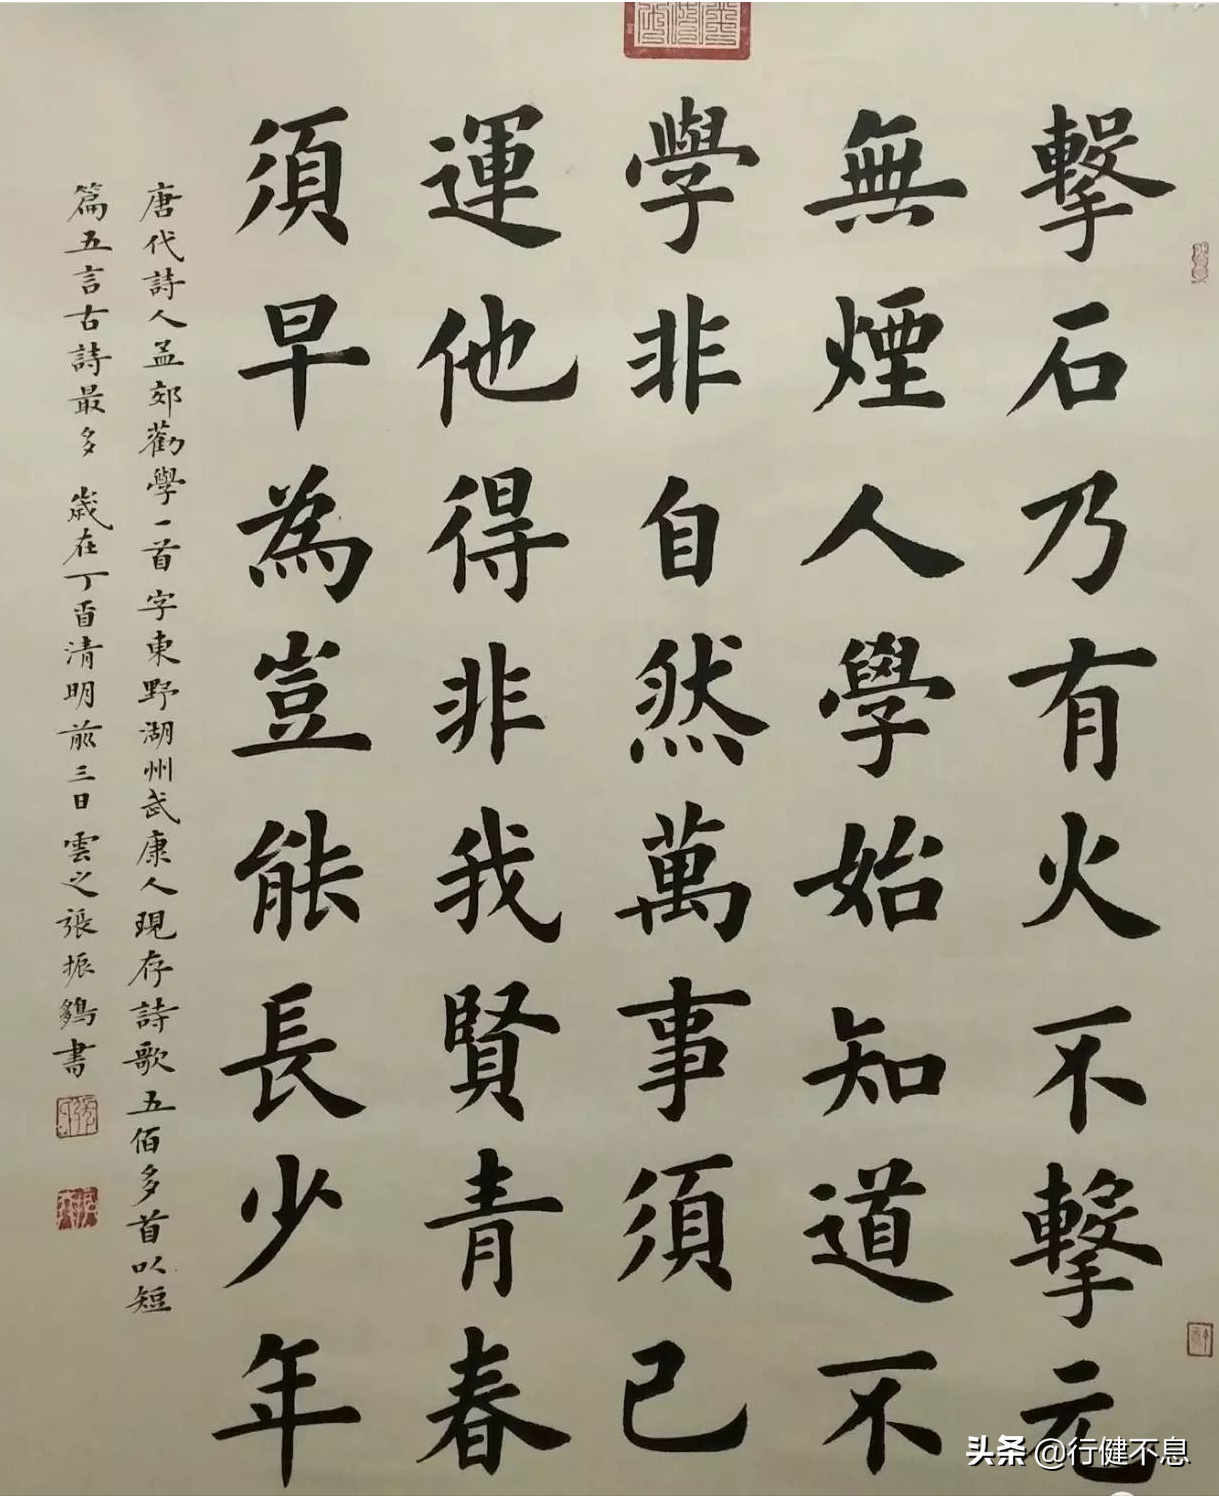 擊石乃有火不擊元
無煙人學始知道不
學非自然萬事須己
運他得非我賢青春
須早為豈能長少年
唐代詩人孟郊勸學一首字東野湖州武康人現存詩歌五佰多首以短
篇五言古詩最多 歲在丁酉清明前三日雲之張振鷄書
头条 @行健不息